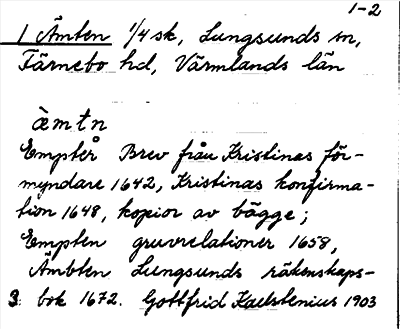 1-2
1 Ämten 1/4 sk, Lungsunds sn,
Färnebo hd, Värmlands län
ämtn
Empter Brev från Kristinas för-
myndare 1642, Kristinas konfirma-
tion 1648, kopior av bägge;
Empten gruvrelationer 1658,
Ämbten Lungsunds räkenskaps-
3. bok 1672. Gottfrid Kallstenius 1903